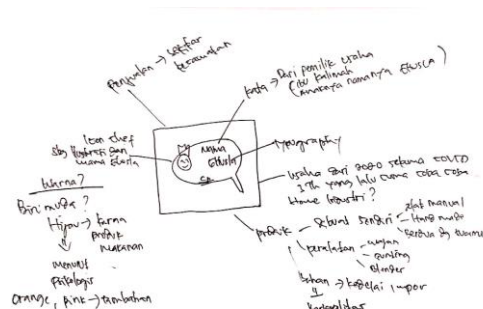 Penjualan → sekitar
kecamatan
kata → Dari pemilik usaha
(ibu Kalimah
(anaknya namanya Eklusia)
Icon chef
sbg ilustrasi dari
mama
mama
typography
usaha dari 2020 selama COVID
1 Th yang lalu cuma coba coba
Home Industri?
Warna?
Biru muda?
Hijau → karna
produk
makanan
menurut
Psikologis
Orange, Pink → tambahan
produk
dibuat sendiri
alat manual
Hand made
peralatan
wajan
gunting
Blender
Bahan → kedelai impor